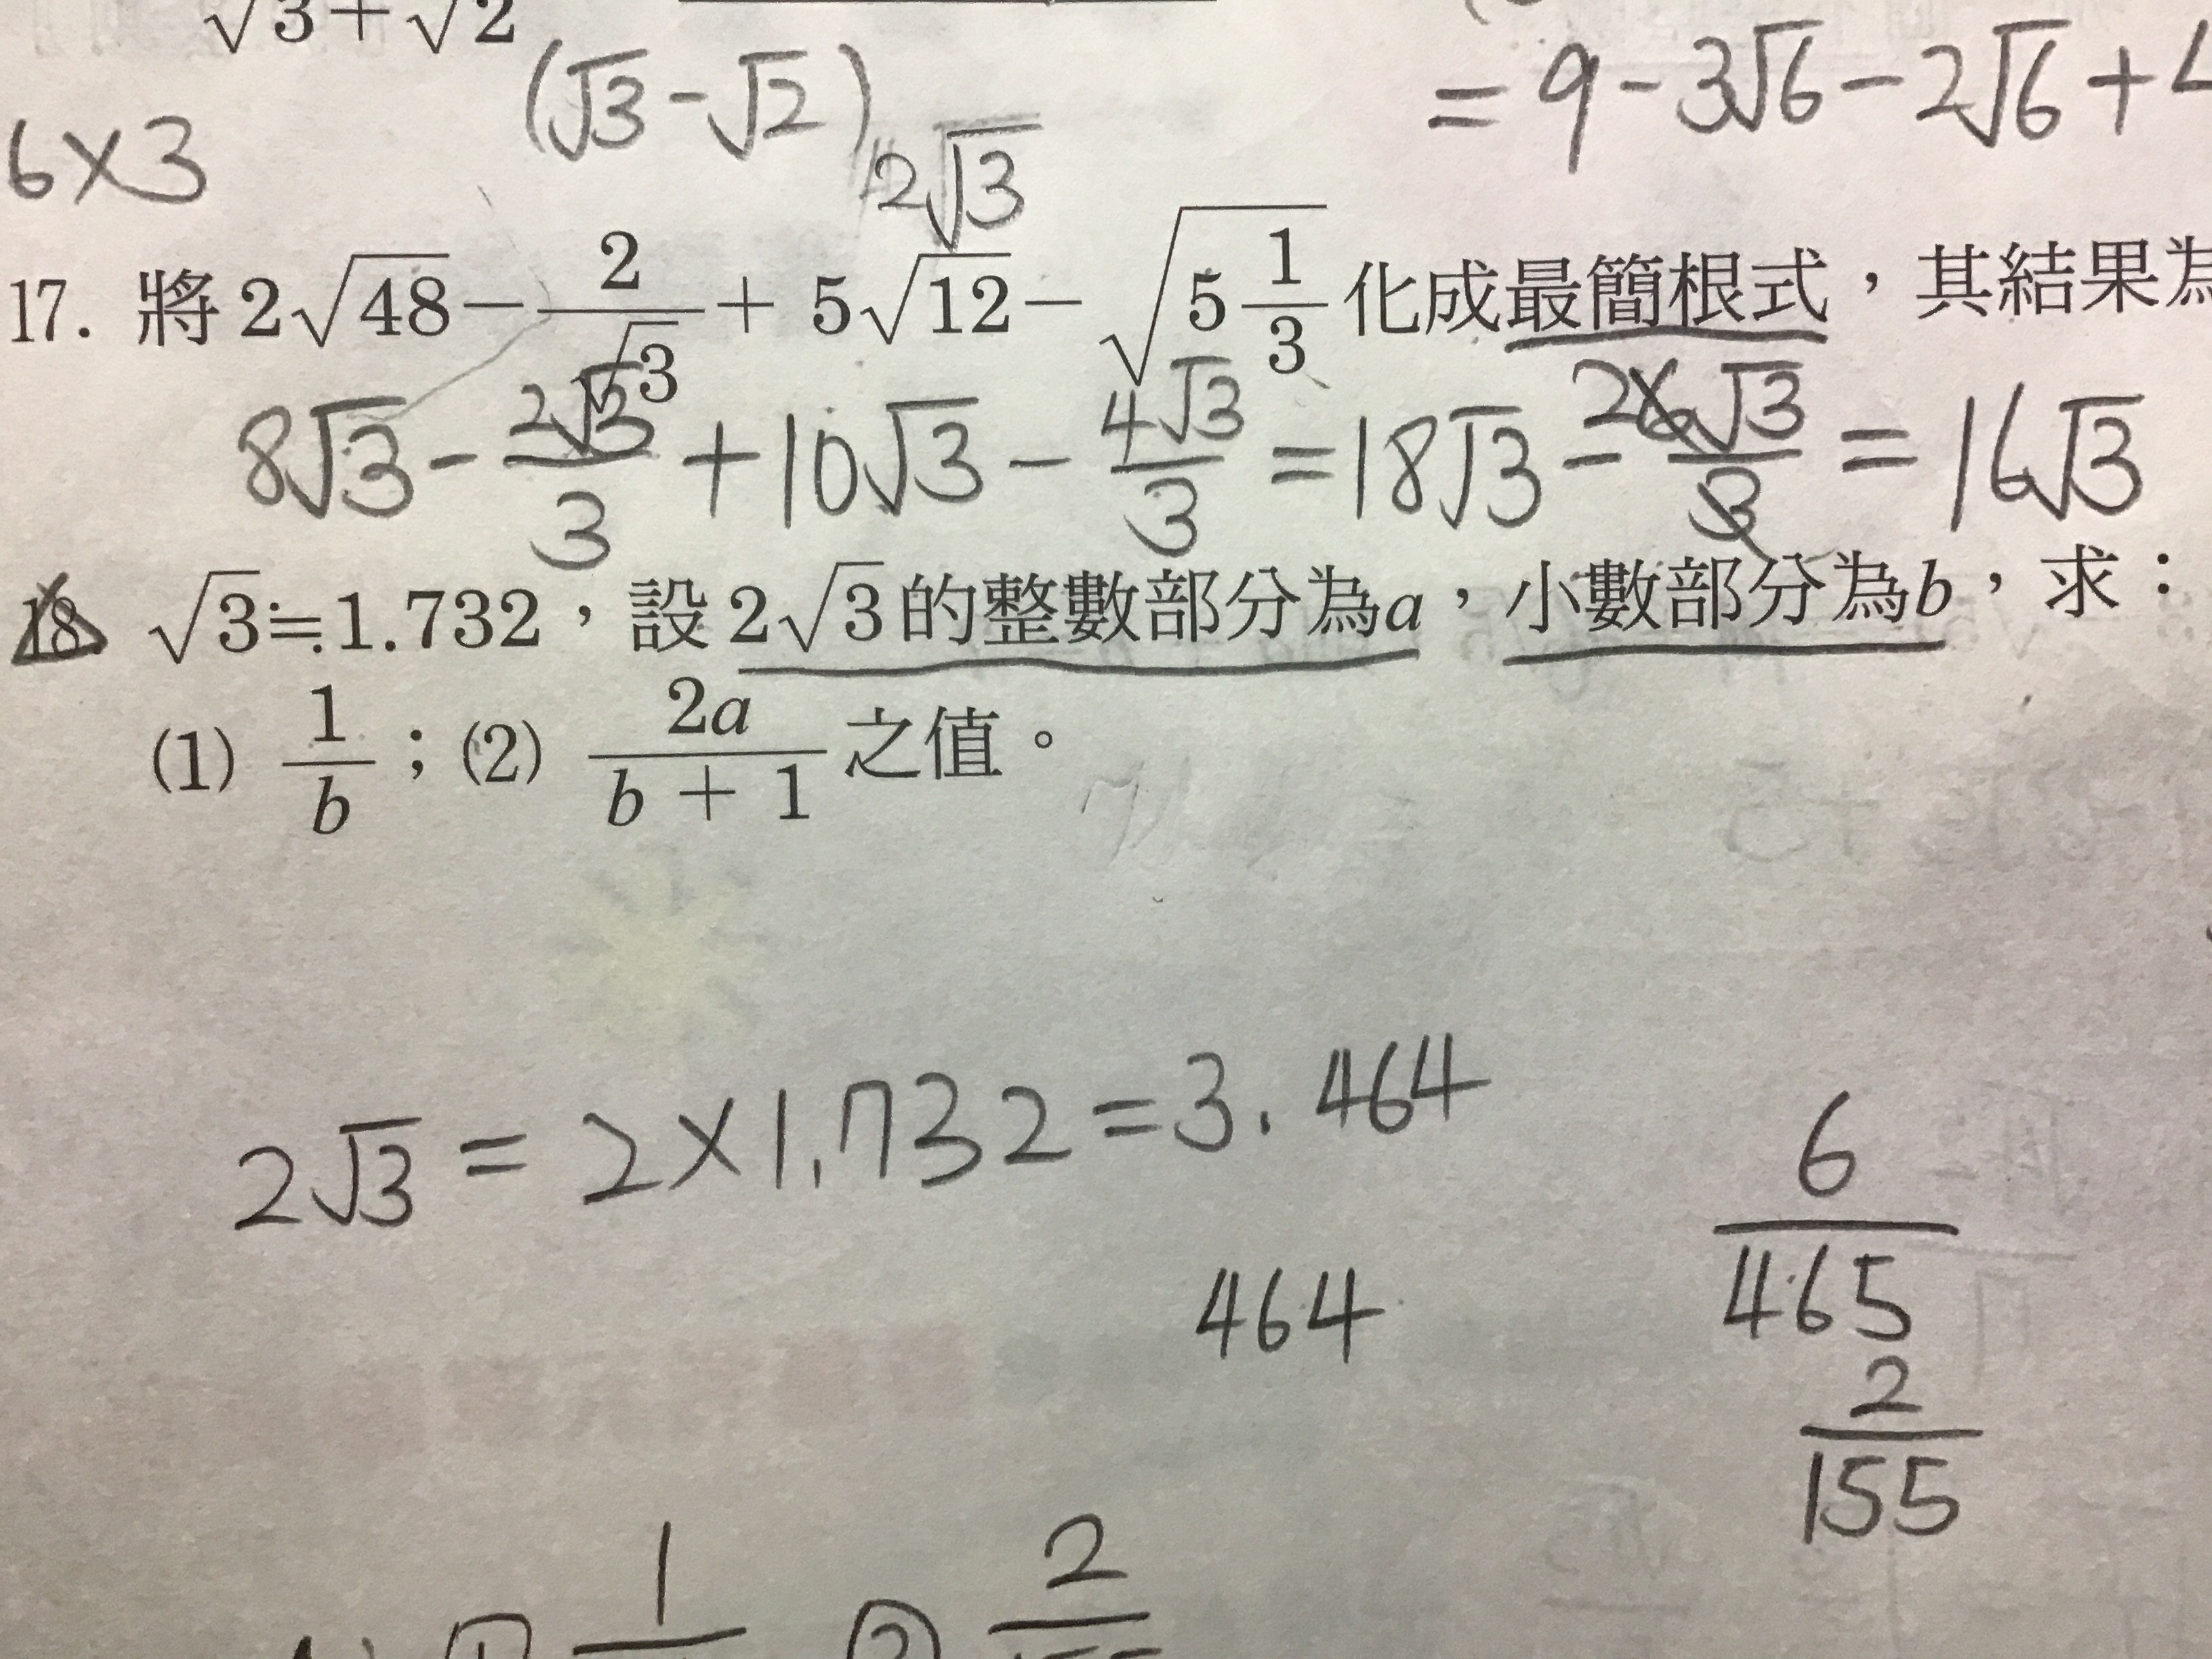 √3+√2
(√3-√2)
=9-3√6-2√6+4
6×3
2√3
17. 將2√48-2/√3+5√12-√(5 1/3)化成最簡根式，其結果為
8√3-2√3/3+10√3-4√3/3=18√3-2 6√3/3=16√3
18. √3≒1.732，設2√3的整數部分為a，小數部分為b，求：
(1) 1/b；(2) 2a/(b+1)之值。
2√3=2×1.732=3.464
464
6/465
2/155
① 1
② 2